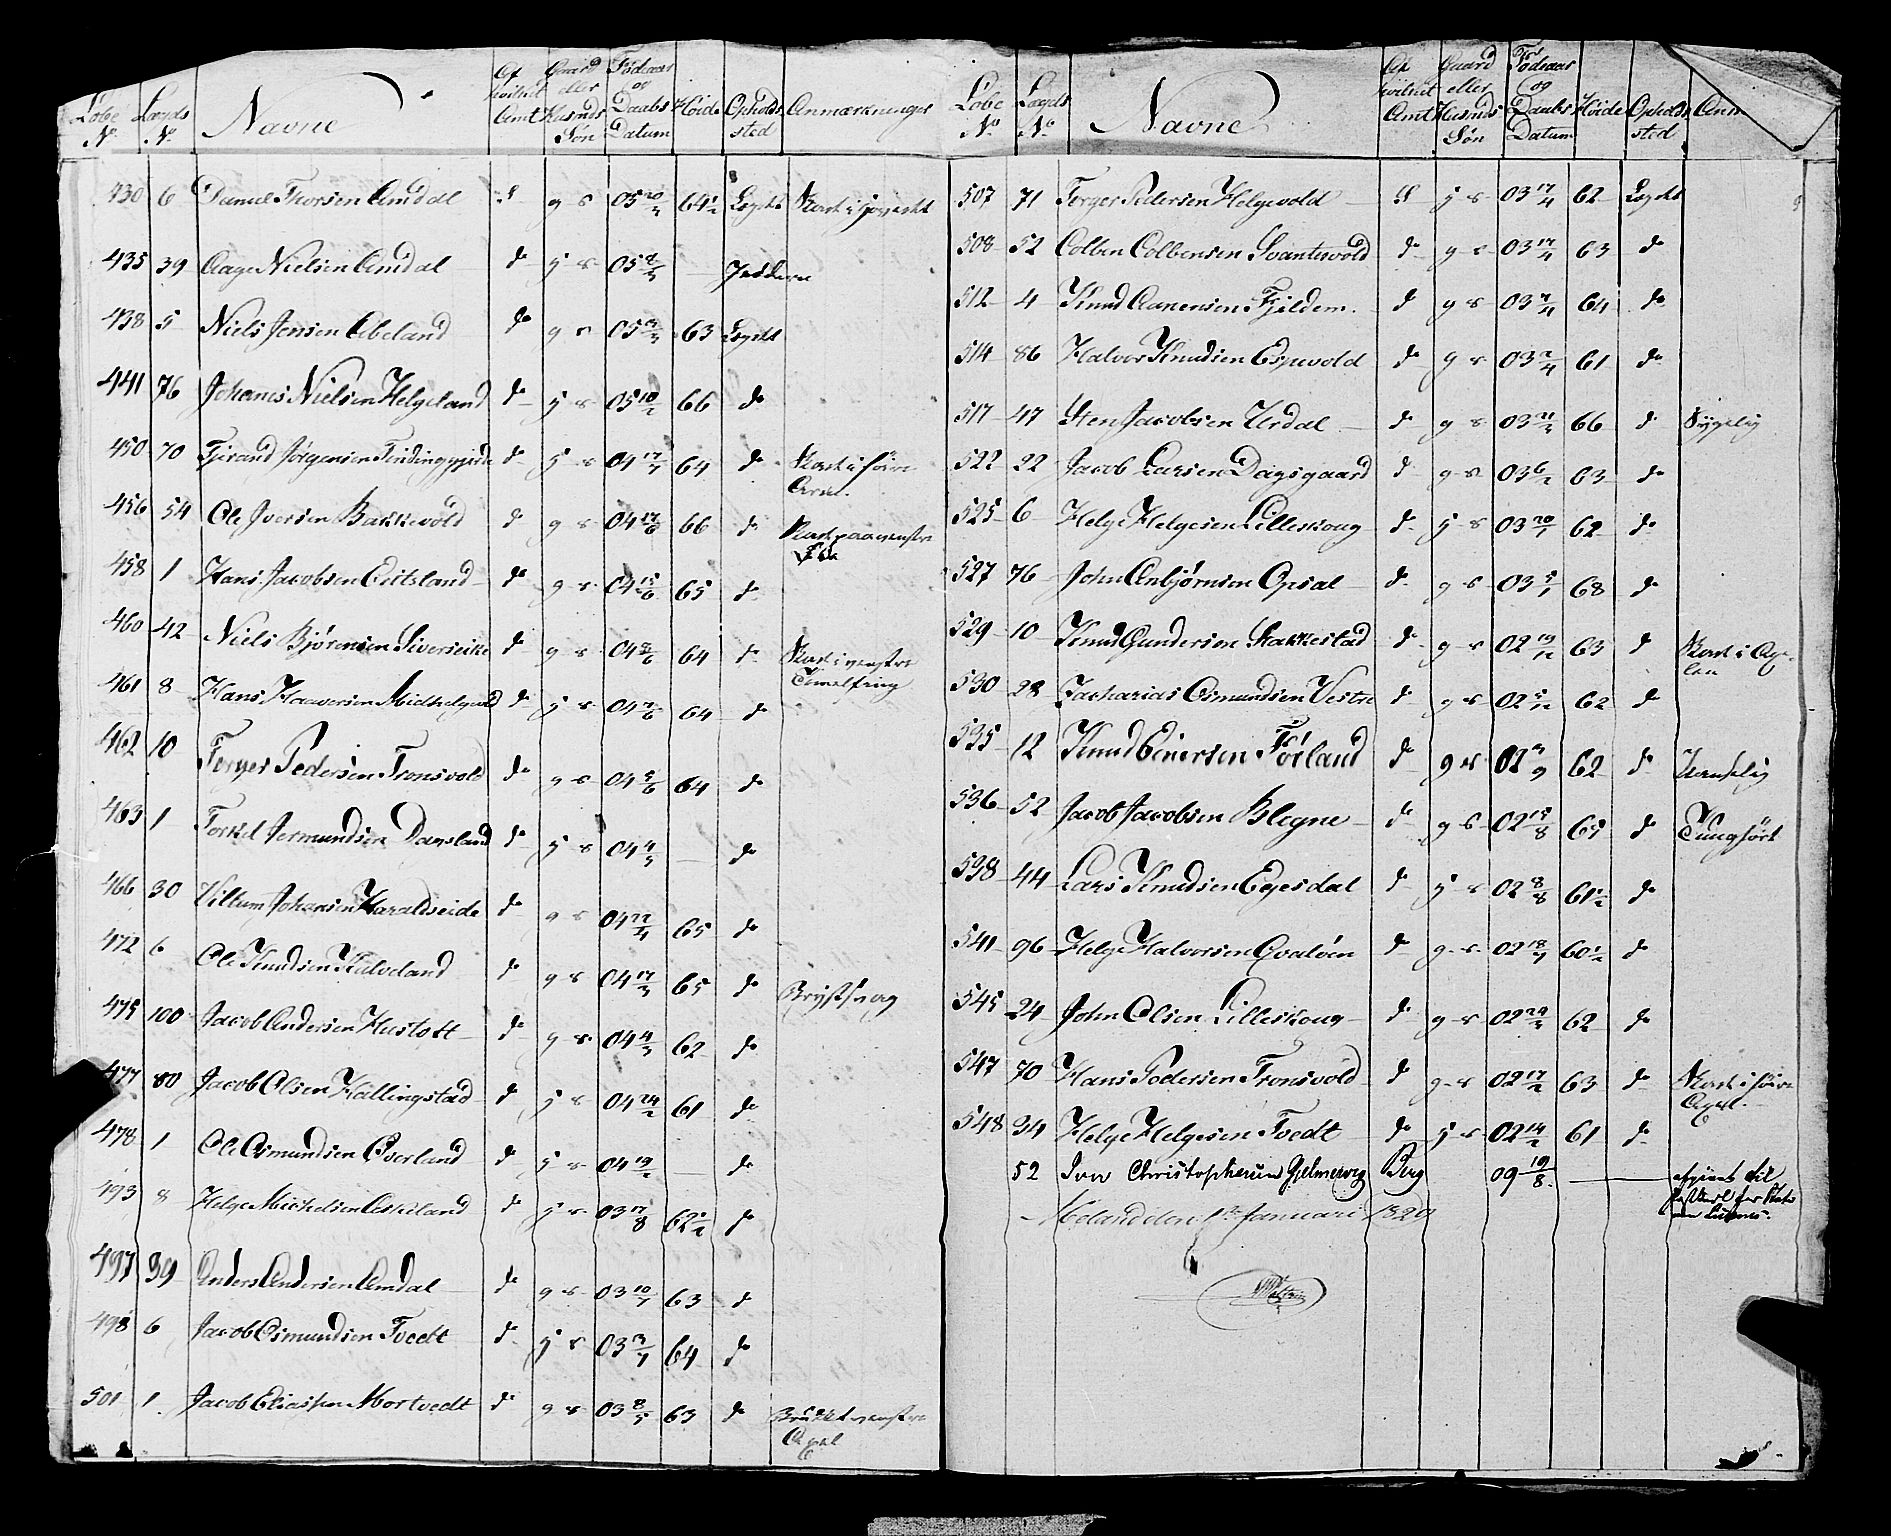 Løbe No. Lægds No. Navne Af hvilket Amt Gaard eller Husmds Søn Fødeaar og Daabs Datum Høide Opholds sted Anmærkninger
430 6 Daniel Thorsen Amdal g s 05 64½ Lægdet
435 39 Aage Nielsen Amdal do j s 05 8/3 — Jedderen
438 5 Niels Jensen Abeland do g s 05 3/3 63 Lægdet
441 76 Johanes Nielsen Helgeland do j s 05 10/2 66 do
450 70 Tjerand Jørgensen do j s 04 17/7 64 do Skade i høire Arm.
456 54 Ole Iversen Bakkevold do g s 04 17/6 66 do Skade paa venstre
458 1 Hans Jacobsen Eitsland do g s 04 15/6 65 do
460 42 Niels Bjørensen Siverseike do g s 04 8/6 64 do Skade i venstre Tomelfing
461 8 Hans Haaversen do j s 04 7/6 64 do
462 10 Torger Pedersen Tronsvold do g s 04 5/6 64 do
463 1 Torkel Jermundsen Dansland do j s 04 4/5 — do
466 30 Villum Johansen Haraldseide do g s 04 22/4 65 do
472 6 Ole Knudsen Kalveland do g s 04 17/3 65 do Brystsvag
475 100 Jacob Andersen Hustoft do g s 04 4/3 62 do
477 80 Jacob Olsen Hallingstad do j s 04 24/2 61 do
478 1 Ole Osmundsen Øverland do j s 04 19/2 — do
493 8 Helge Michelsen Askeland do j s 03 17/8 62½ do
497 39 Anders Andersen Amdal do g s 03 10/7 63 do
498 6 Jacob Osmundsen Tvedt do j s 03 3/7 64 do
501 1 Jacob Eliassen Mortvedt do g s 03 8/5 63 do Brudt venstre Axel
Løbe No. Lægds No. Navne Af hvilket Amt Gaard eller Husmds Søn Fødeaar og Daabs Datum Høide Opholds sted Anm
507 71 Torger Pedersen Helgevold j s 03 17/4 62 Lægdet
508 52 Colben Colbensen Svantesvold do g s 03 17/4 63 do
512 4 Knud Aanensen Fjeldem. do g s 03 7/4 64 do
514 86 Halvor Knudsen Espevold do g s 03 2/4 61 do
517 47 Sten Jacobsen Urdal do g s 03 21/3 66 do Sygelig
522 22 Jacob Larsen Dagsgaard do g s 03 6/2 63 do
525 6 Helge Helgesen Lilleskoug do j s 03 20/1 62 do
527 76 John Anbjørnsen Opsal do g s 03 5/1 68 do
529 10 Knud Gundersen Stakkestad do g s 02 19/12 63 do Skade i Axlen
530 28 Zacharias Osmundsen Vestre do g s 02 5/12 62 do
535 12 Knud Einersen Førland do g s 02 /9 62 do
536 52 Jacob Jacobsen Blegne do g s 02 15/8 65 do Tunghørt
538 44 Lars Knudsen Egesdal do j s 02 8/8 61½ do
541 96 Helge Halvorsen Qvaløen do g s 02 18/7 60½ do
545 24 John Olsen Lilleskoug do g s 02 24/3 62 do
547 70 Hans Pedersen Tronsvold do g s 02 17/2 63 do Skade i høire Axel.
548 34 Helge Helgesen Tvedt do j s 02 14/2 61 do
52 Iver Christophersen Gjelmervig Berg 09 19/8 — afgivet til
Meland den Januari 1829